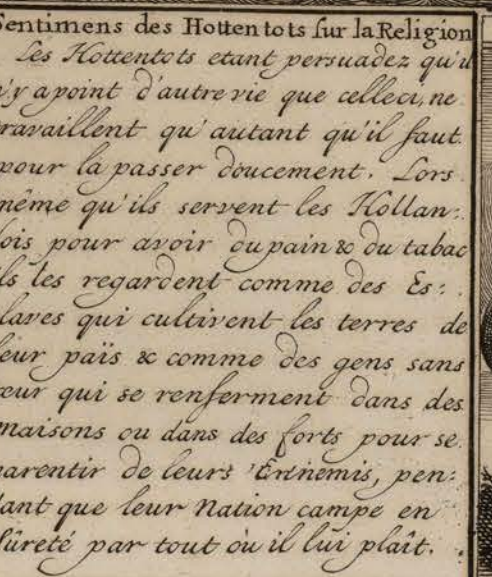 Sentimens des Hottentots sur la Religion
Les Hottentots etant persuadez qu'il
n'y a point d'autre vie que celle ci, ne
travaillent qu'autant qu'il faut
pour la passer doucement. Lors
même qu'ils servent les Hollan:
dois pour avoir du pain & du tabac
ils les regardent comme des Es:
claves qui cultivent les terres de
leur païs & comme des gens sans
cœur qui se renferment dans des
maisons ou dans des forts pour se
garentir de leurs Ennemis, pen:
dant que leur Nation campe en
sûreté par tout où il lui plaît.